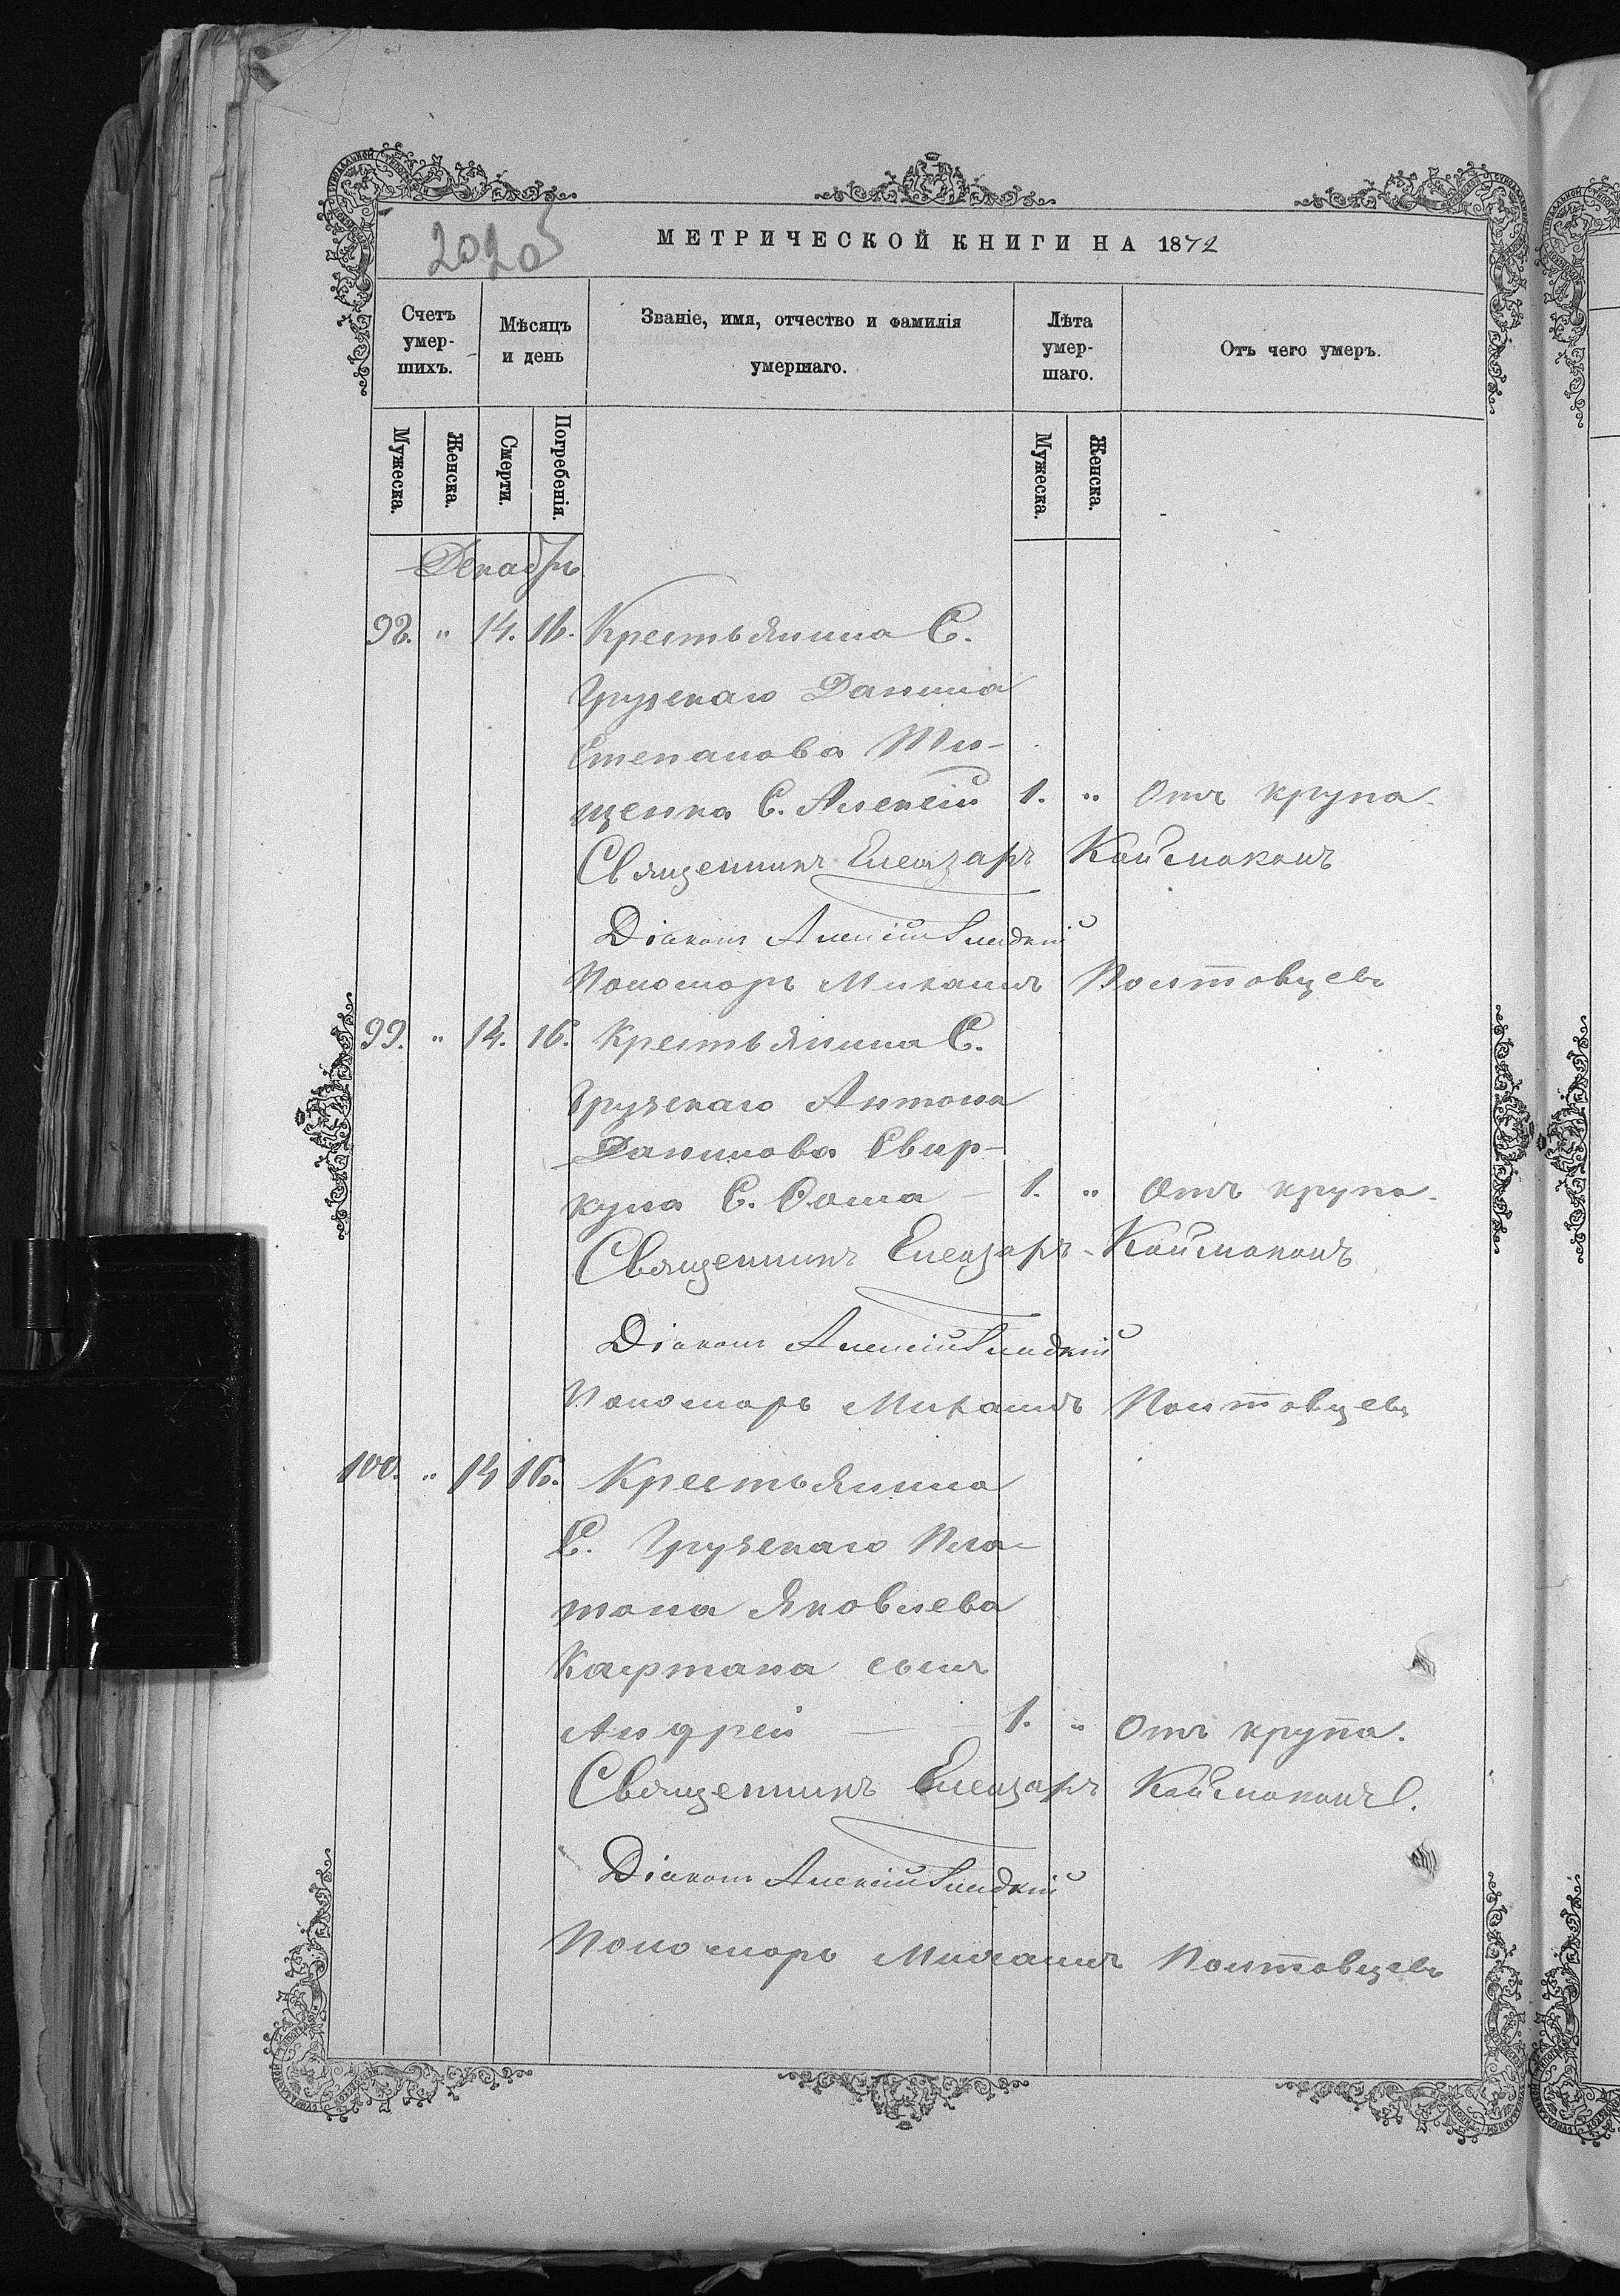 2020б
МЕТРИЧЕСКОЙ КНИГИ НА 1872
Счетъ умер-шихъ.
Мѣсяцъ и день
Званіе, имя, отчество и фамилія умершаго.
Лѣта умер-шаго.
Отъ чего умеръ.
Мужеска.
Женска.
Смерти.
Погребенія.
Мужеска.
Женска.
Декабрь
98. " 14. 16. Крестьянина С.
Грузскаго Данила
Степанова Ти-
щенка С. Алексій 1. " Отъ крупа.
Священникъ Елеазаръ Каймаканъ
Діаконъ Алексій
Пономарь Михаилъ Полтовцевъ
99. " 14. 16. Крестьянина С.
Грузскаго Антона
Данилова Свир-
куна С. Фома — 1. " Отъ крупа.
Священникъ Елеазаръ Каймаканъ
Діаконъ Алексій
Пономарь Михаилъ Полтовцевъ
100. " 14 16. Крестьянина
С. Грузскаго Пла-
тона Яковлева
Кафтана сынъ
Андрей — — 1. " Отъ крупа.
Священникъ Елеазаръ Каймаканъ
Діаконъ Алексій
Пономарь Михаилъ Полтовцевъ